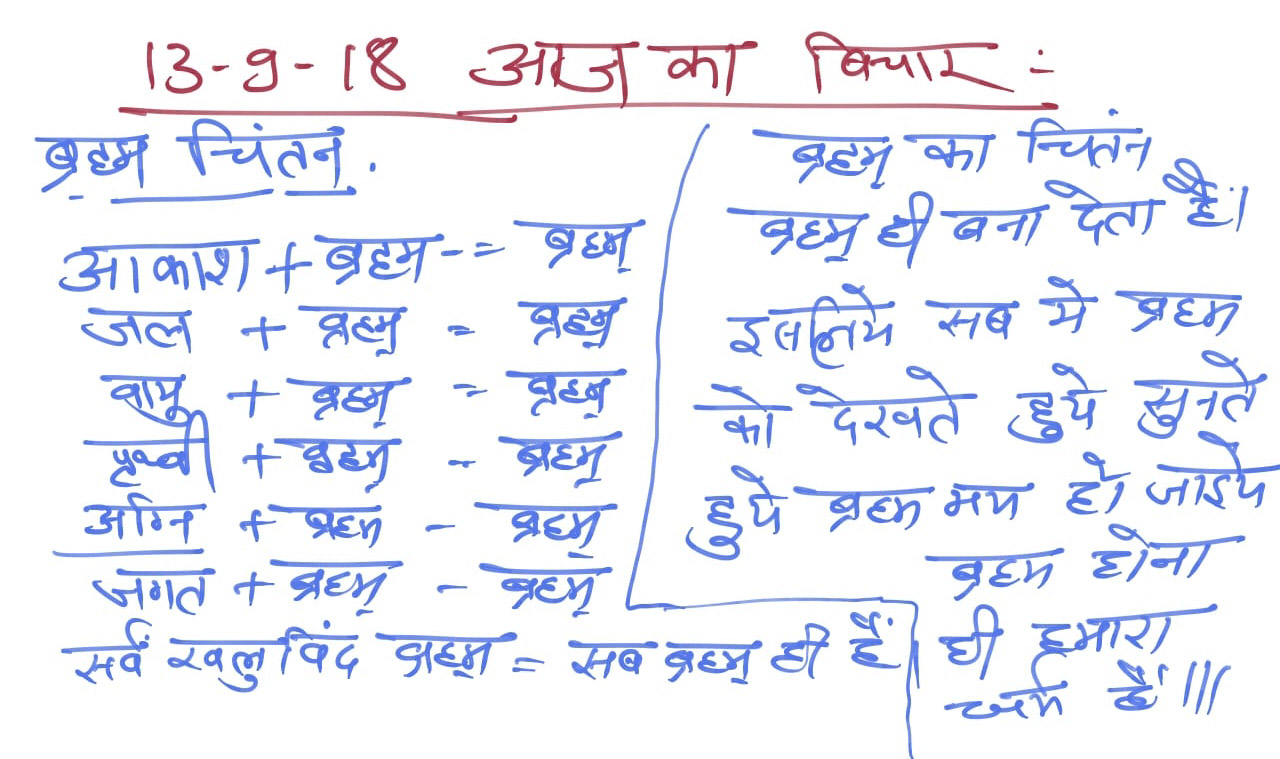 13-9-18 आज का विचार :-
ब्रह्म चिंतन.
आकाश + ब्रह्म -= ब्रह्म्
जल + ब्रह्म् = ब्रह्म्
वायु + ब्रह्म् = ब्रह्म्
पृथ्वी + ब्रह्म् - ब्रह्म्
अग्नि + ब्रह्म - ब्रह्म्
जगत + ब्रह्म् - ब्रह्म्
सर्वं खलुविंद ब्रह्म् = सब ब्रह्म् ही हैं
ब्रह्म् का चिंतन
ब्रह्म् ही बना देता है।
इसलिये सब मे ब्रह्म
को देखते हुये सुनते
हुये ब्रह्म मय हो जाइये
ब्रह्म होना
ही हमारा
धर्म हैं।।।